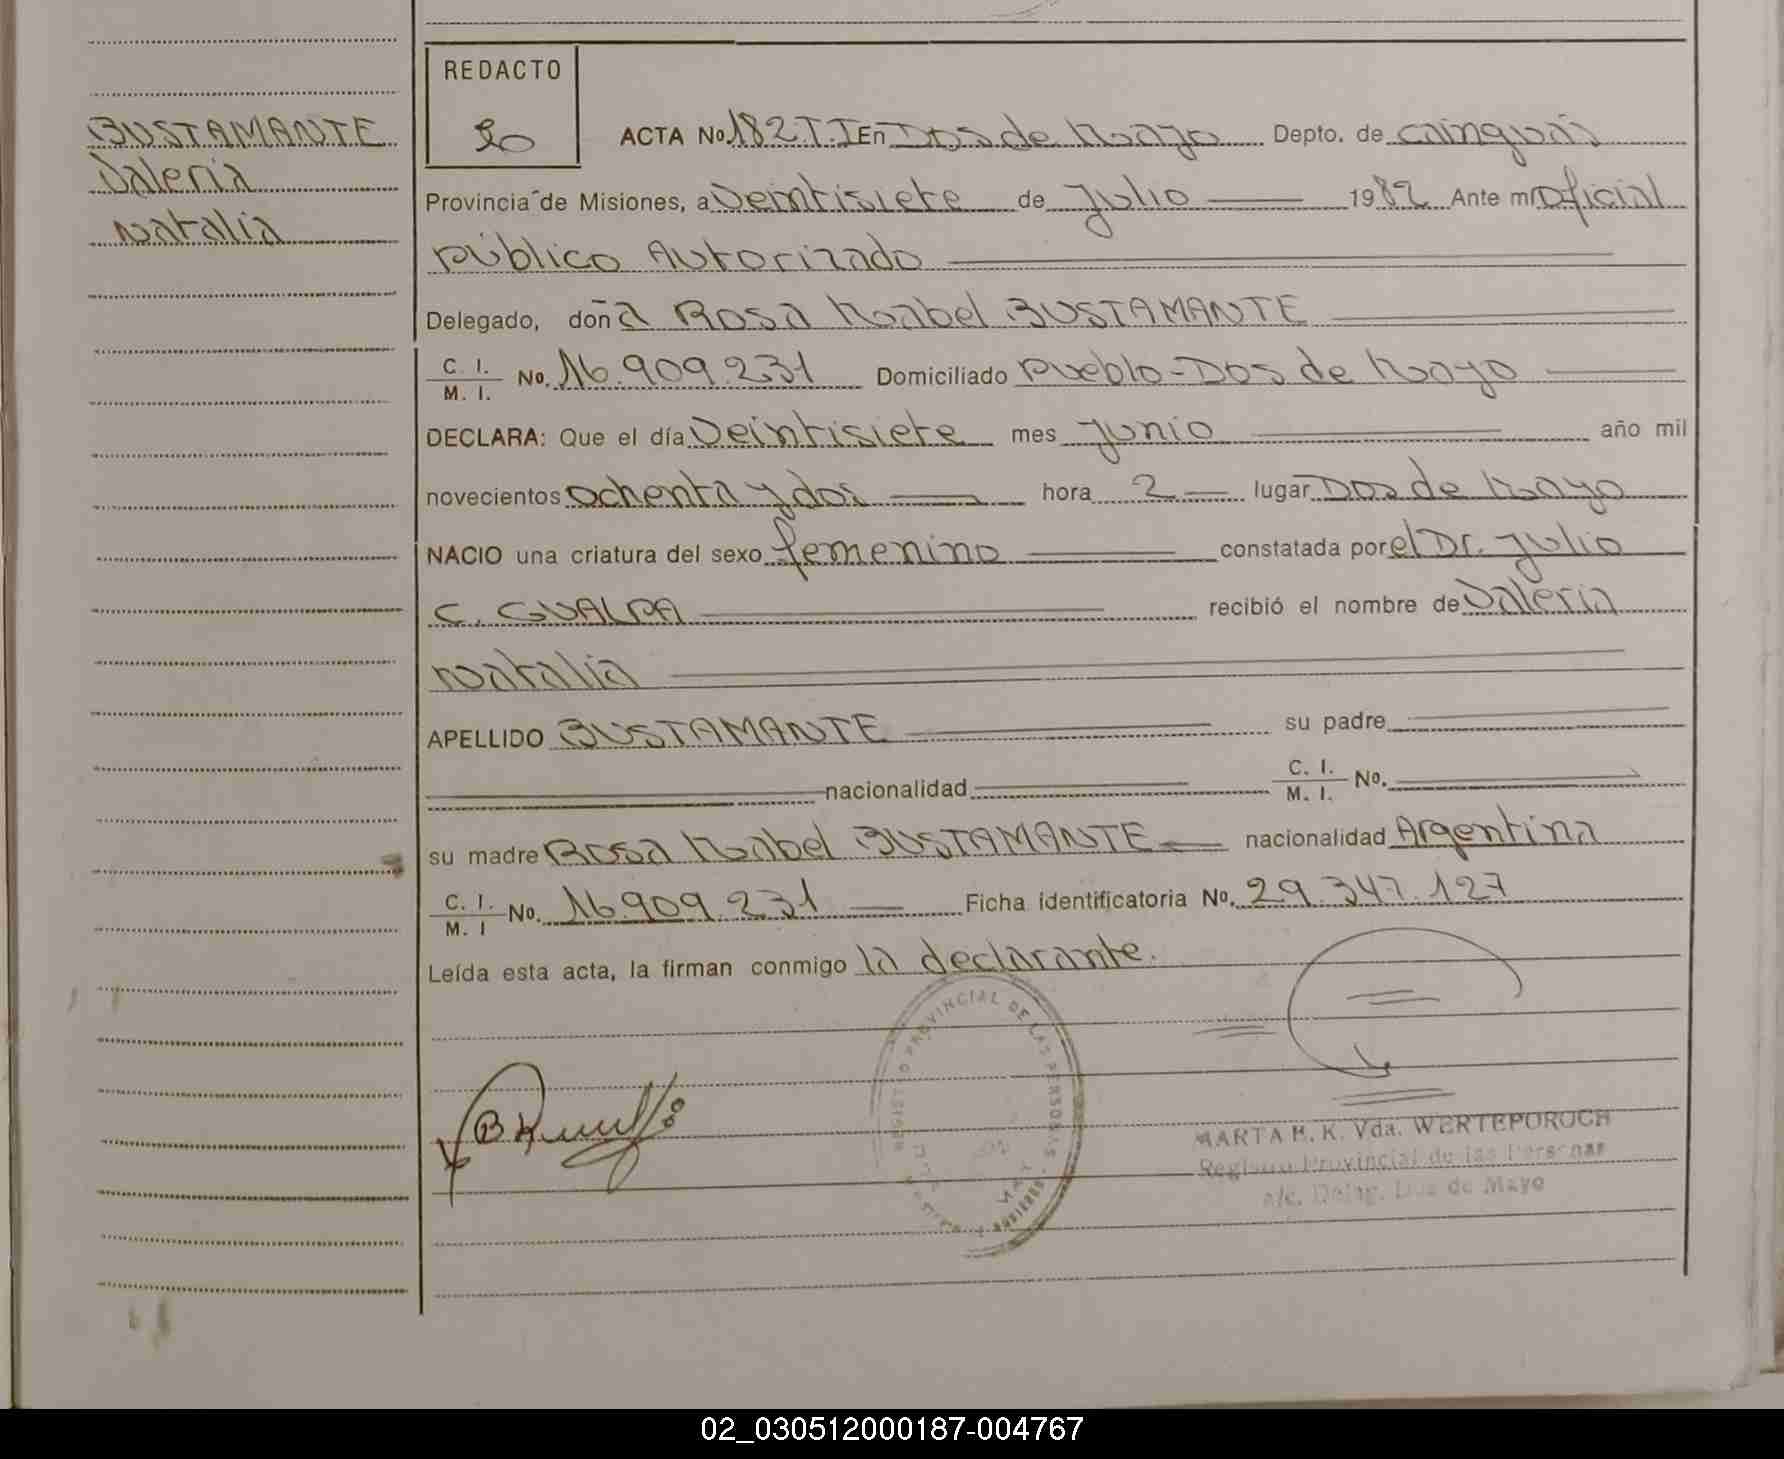 BUSTAMANTE
Valeria
Natalia
REDACTO
ACTA No 182.T.I En Dos de Mayo Depto. de Cainguás
Provincia de Misiones, a Veintisiete de Julio 1982 Ante mi Oficial
Público Autorizado
Delegado, doña Rosa Mabel BUSTAMANTE
C. I.
M. I. No. 16.909.231 Domiciliado Pueblo-Dos de Mayo
DECLARA: Que el día Veintisiete mes Junio año mil
novecientos ochenta y dos hora 2 lugar Dos de Mayo
NACIO una criatura del sexo femenino constatada por el Dr. Julio
C. GUALPA recibió el nombre de Valeria
Natalia
APELLIDO BUSTAMANTE su padre
nacionalidad C. I.
M. I. No.
su madre Rosa Mabel BUSTAMANTE nacionalidad Argentina
C. I.
M. I No. 16.909.231 Ficha identificatoria No. 29.347.127
Leída esta acta, la firman conmigo la declarante.
REGISTRO PROVINCIAL DE LAS PERSONAS
MARTA H. K. Vda. WERTEPOROCH
Registro Provincial de las Personas
a/c. Deleg. Dos de Mayo
02_030512000187-004767